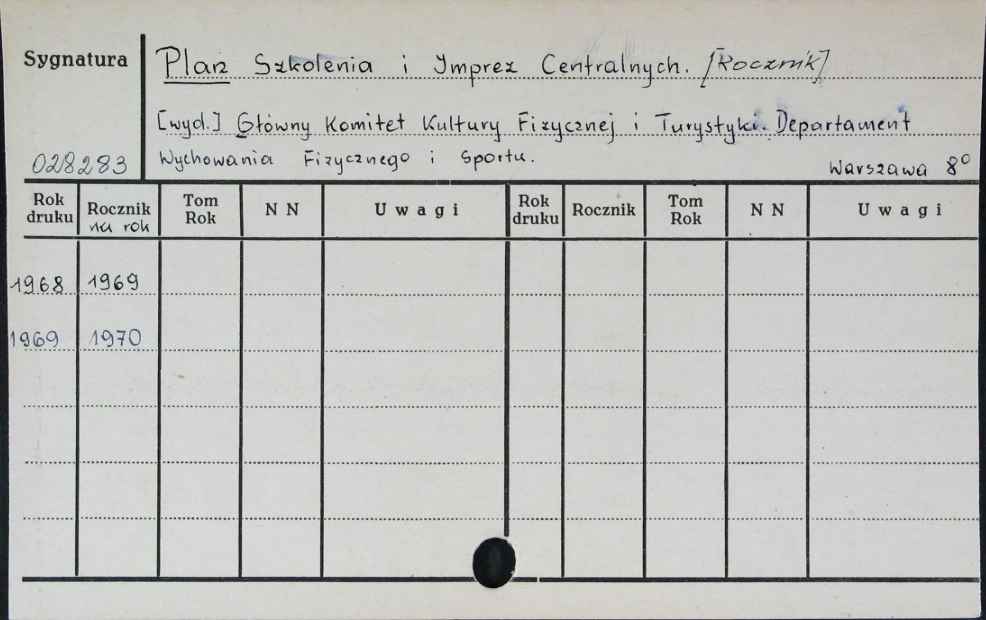 Sygnatura
Plan Szkolenia i Imprez Centralnych. [Rocznik]
[wyd.] Główny Komitet Kultury Fizycznej i Turystyki. Departament
028283 Wychowania Fizycznego i Sportu. Warszawa 8°
Rok druku Rocznik na rok Tom Rok N N Uwagi Rok druku Rocznik Tom Rok N N Uwagi
1968 1969
1969 1970